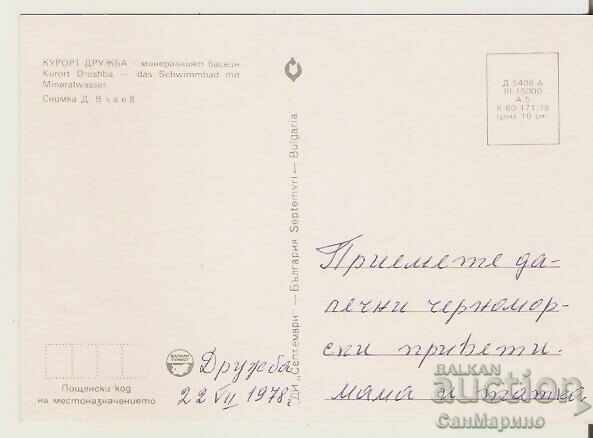 КУРОРТ ДРУЖБА - минералният басейн
Kurort Drushba — das Schwimmbad mit
Mineralwasser
Снимка Д. Вчаев
ДИ „Септември" — България Septemvri — Bulgaria
Д-5408-А
III-15000
А 5
К 60-171-78
цена 10 ст.
Приемете да-
лечни черномор-
ски привети.
мама и татка
Дружба
22 VII 1978г
Пощенски код
на местоназначението
БАЛКАН
ТУРИСТ
BALKAN
auction
СанМарино